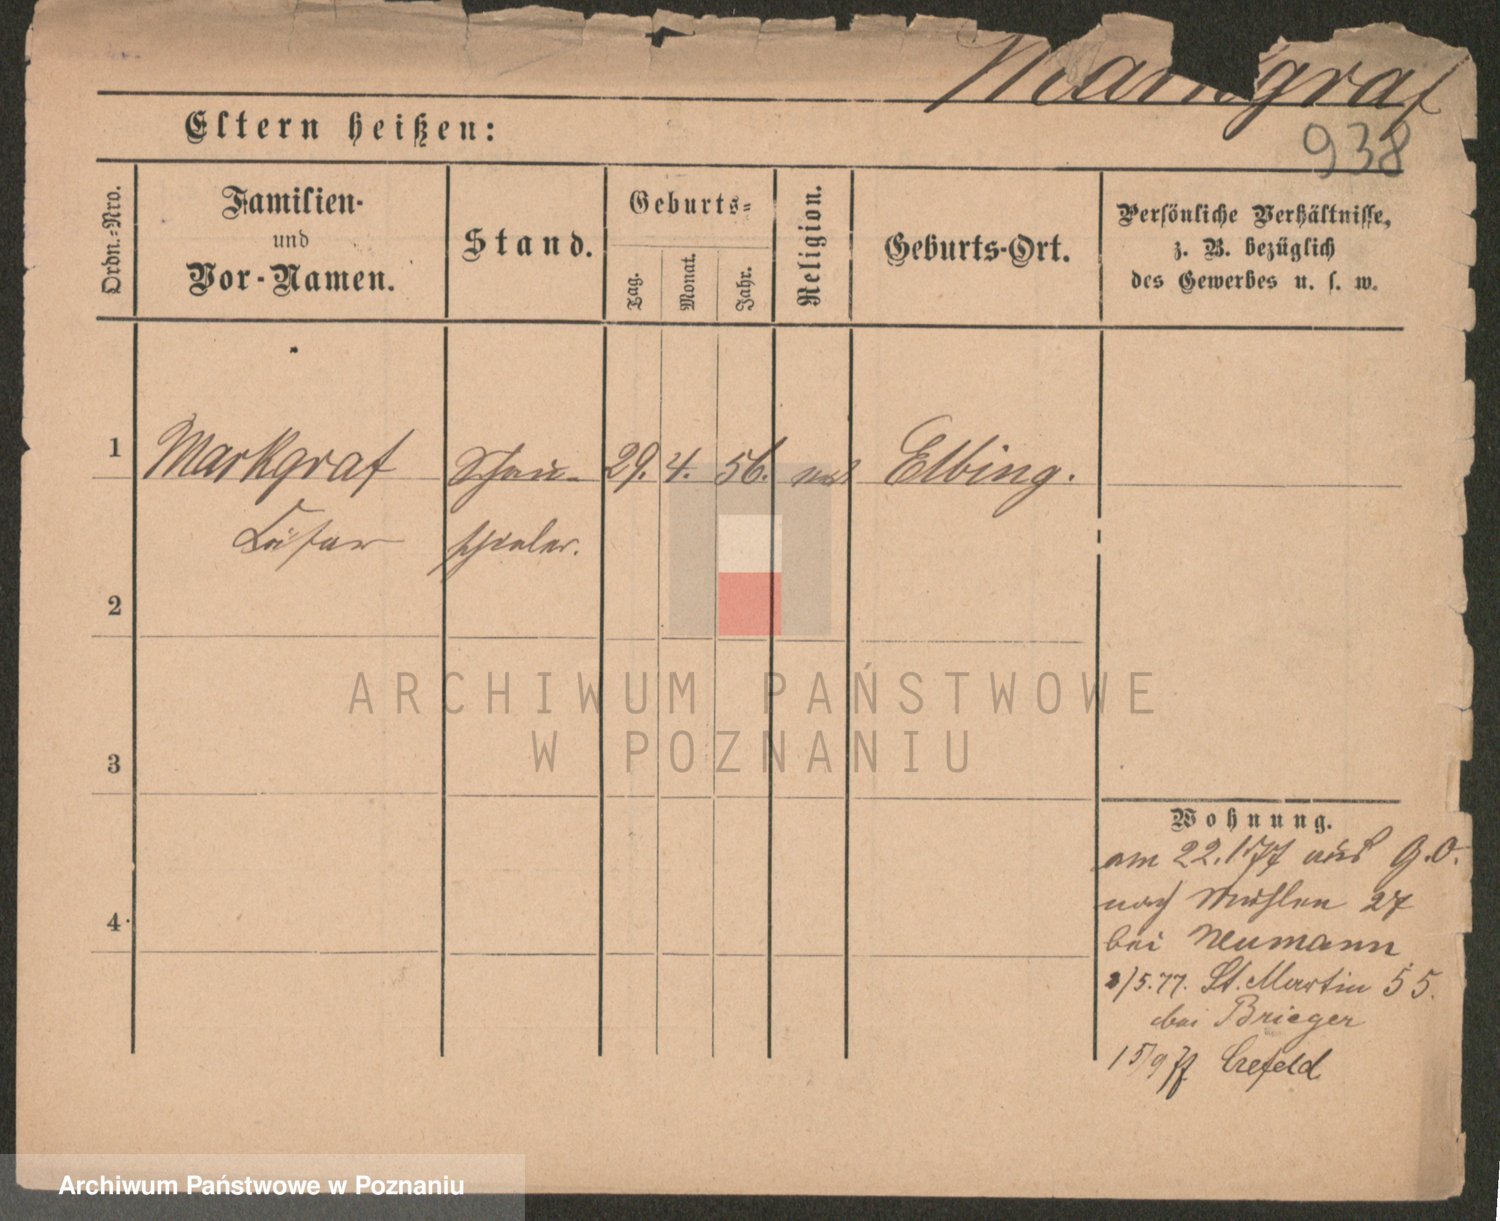 Markgraf
938
Eltern heißen:
Ordn.-Nro.
Familien-
und
Vor-Namen.
Stand.
Geburts-
Tag.
Monat.
Jahr.
Religion.
Geburts-Ort.
Persönliche Verhältnisse,
z. B. bezüglich
des Gewerbes u. s. w.
1
Markgraf Schau- 29. 4. 56. Elbing.
Cäsar spieler.
2
3
4
ARCHIWUM PAŃSTWOWE
W POZNANIU
Wohnung.
am 22.1 77 aus G.O.
nach Mühlen 27
bei Neumann
2/5.77. St. Martin 55.
bei Brieger
15/9 77 Crefeld
Archiwum Państwowe w Poznaniu